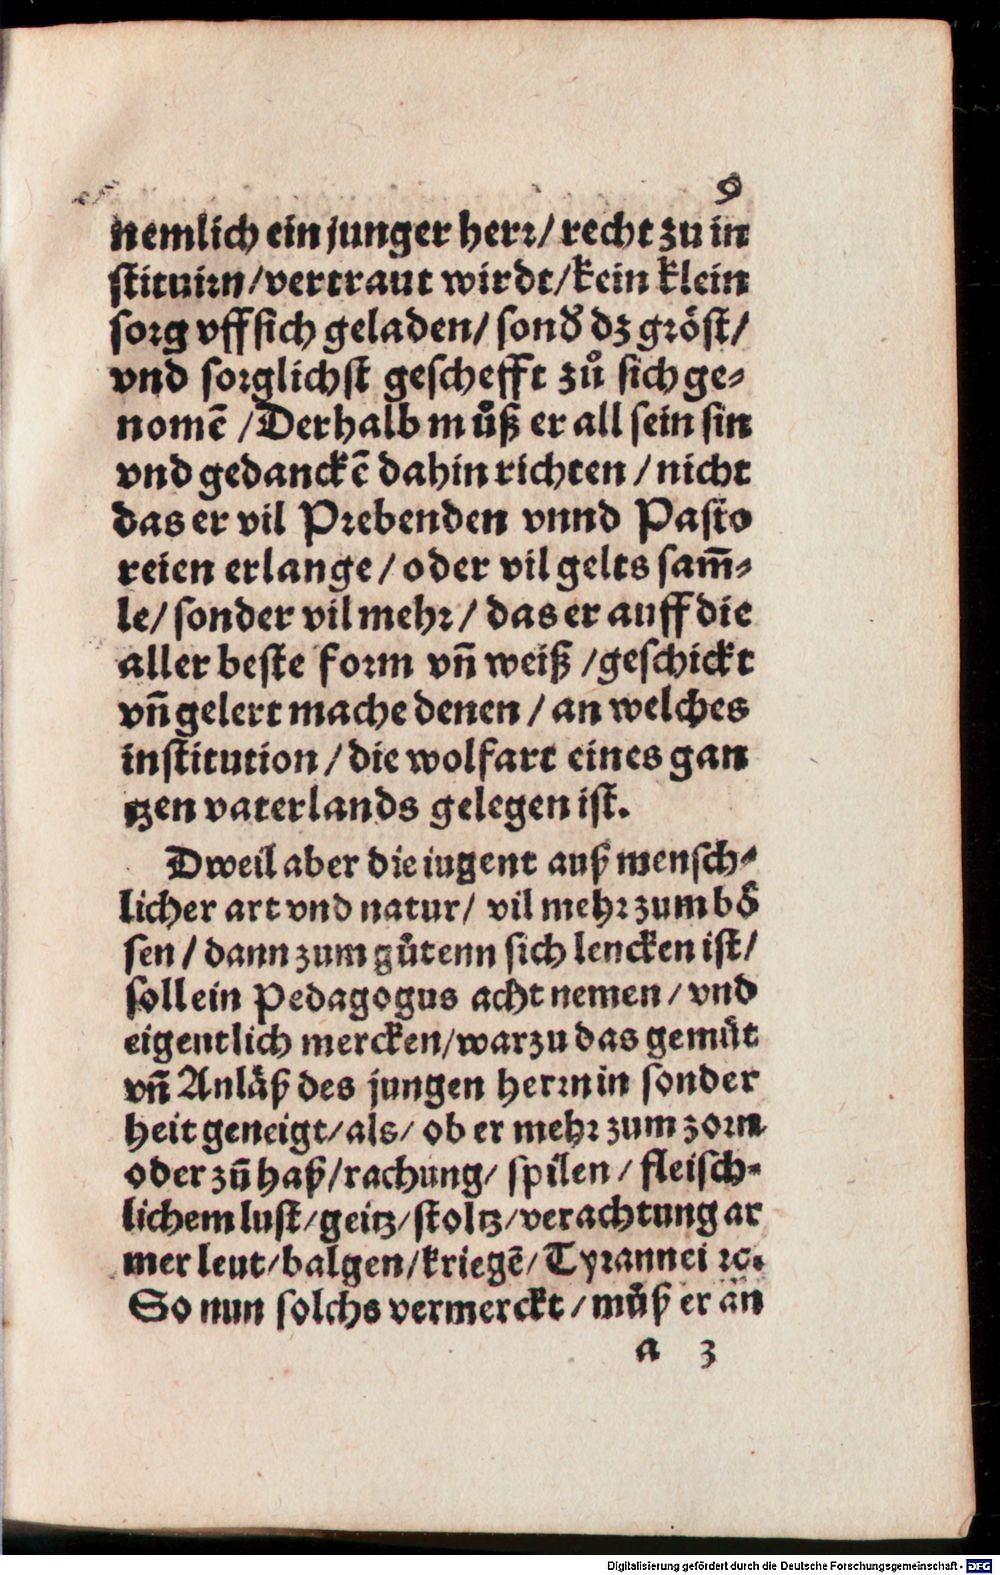 9
nemlich ein junger herr/ recht zu in
stituirn/vertraut wirdt/kein klein
sorg vff sich geladen/ sonđ dz gröst/
vnd sorglichst geschefft zů sich ge⸗
nomē /Derhalb můß er all sein sin
vnd gedanckē dahin richten / nicht
das er vil Prebenden vnnd Pasto
reien erlange/ oder vil gelts sam̄⸗
le/ sonder vil mehr/ das er auff die
aller beste form vn̄ weiß /geschickt
vn̄ gelert mache denen / an welches
institution / die wolfart eines gan
tzen vaterlands gelegen ist.
Dweil aber die iugent auß mensch⸗
licher art vnd natur/ vil mehr zum bö
sen / dann zum gůtenn sich lencken ist/
soll ein Pedagogus acht nemen / vnd
eigentlich mercken/warzu das gemůt
vn̄ Anläß des jungen herrn in sonder
heit geneigt/als/ ob er mehr zum zorn
oder zū haß/rachung/ spilen / fleisch⸗
lichem lust/geitz/stoltz/verachtung ar
mer leut/balgen/kriegē/Tyrannei ꝛc.
So nun solchs vermerckt / můß er an
a 3
Digitalisierung gefördert durch die Deutsche Forschungsgemeinschaft - DFG